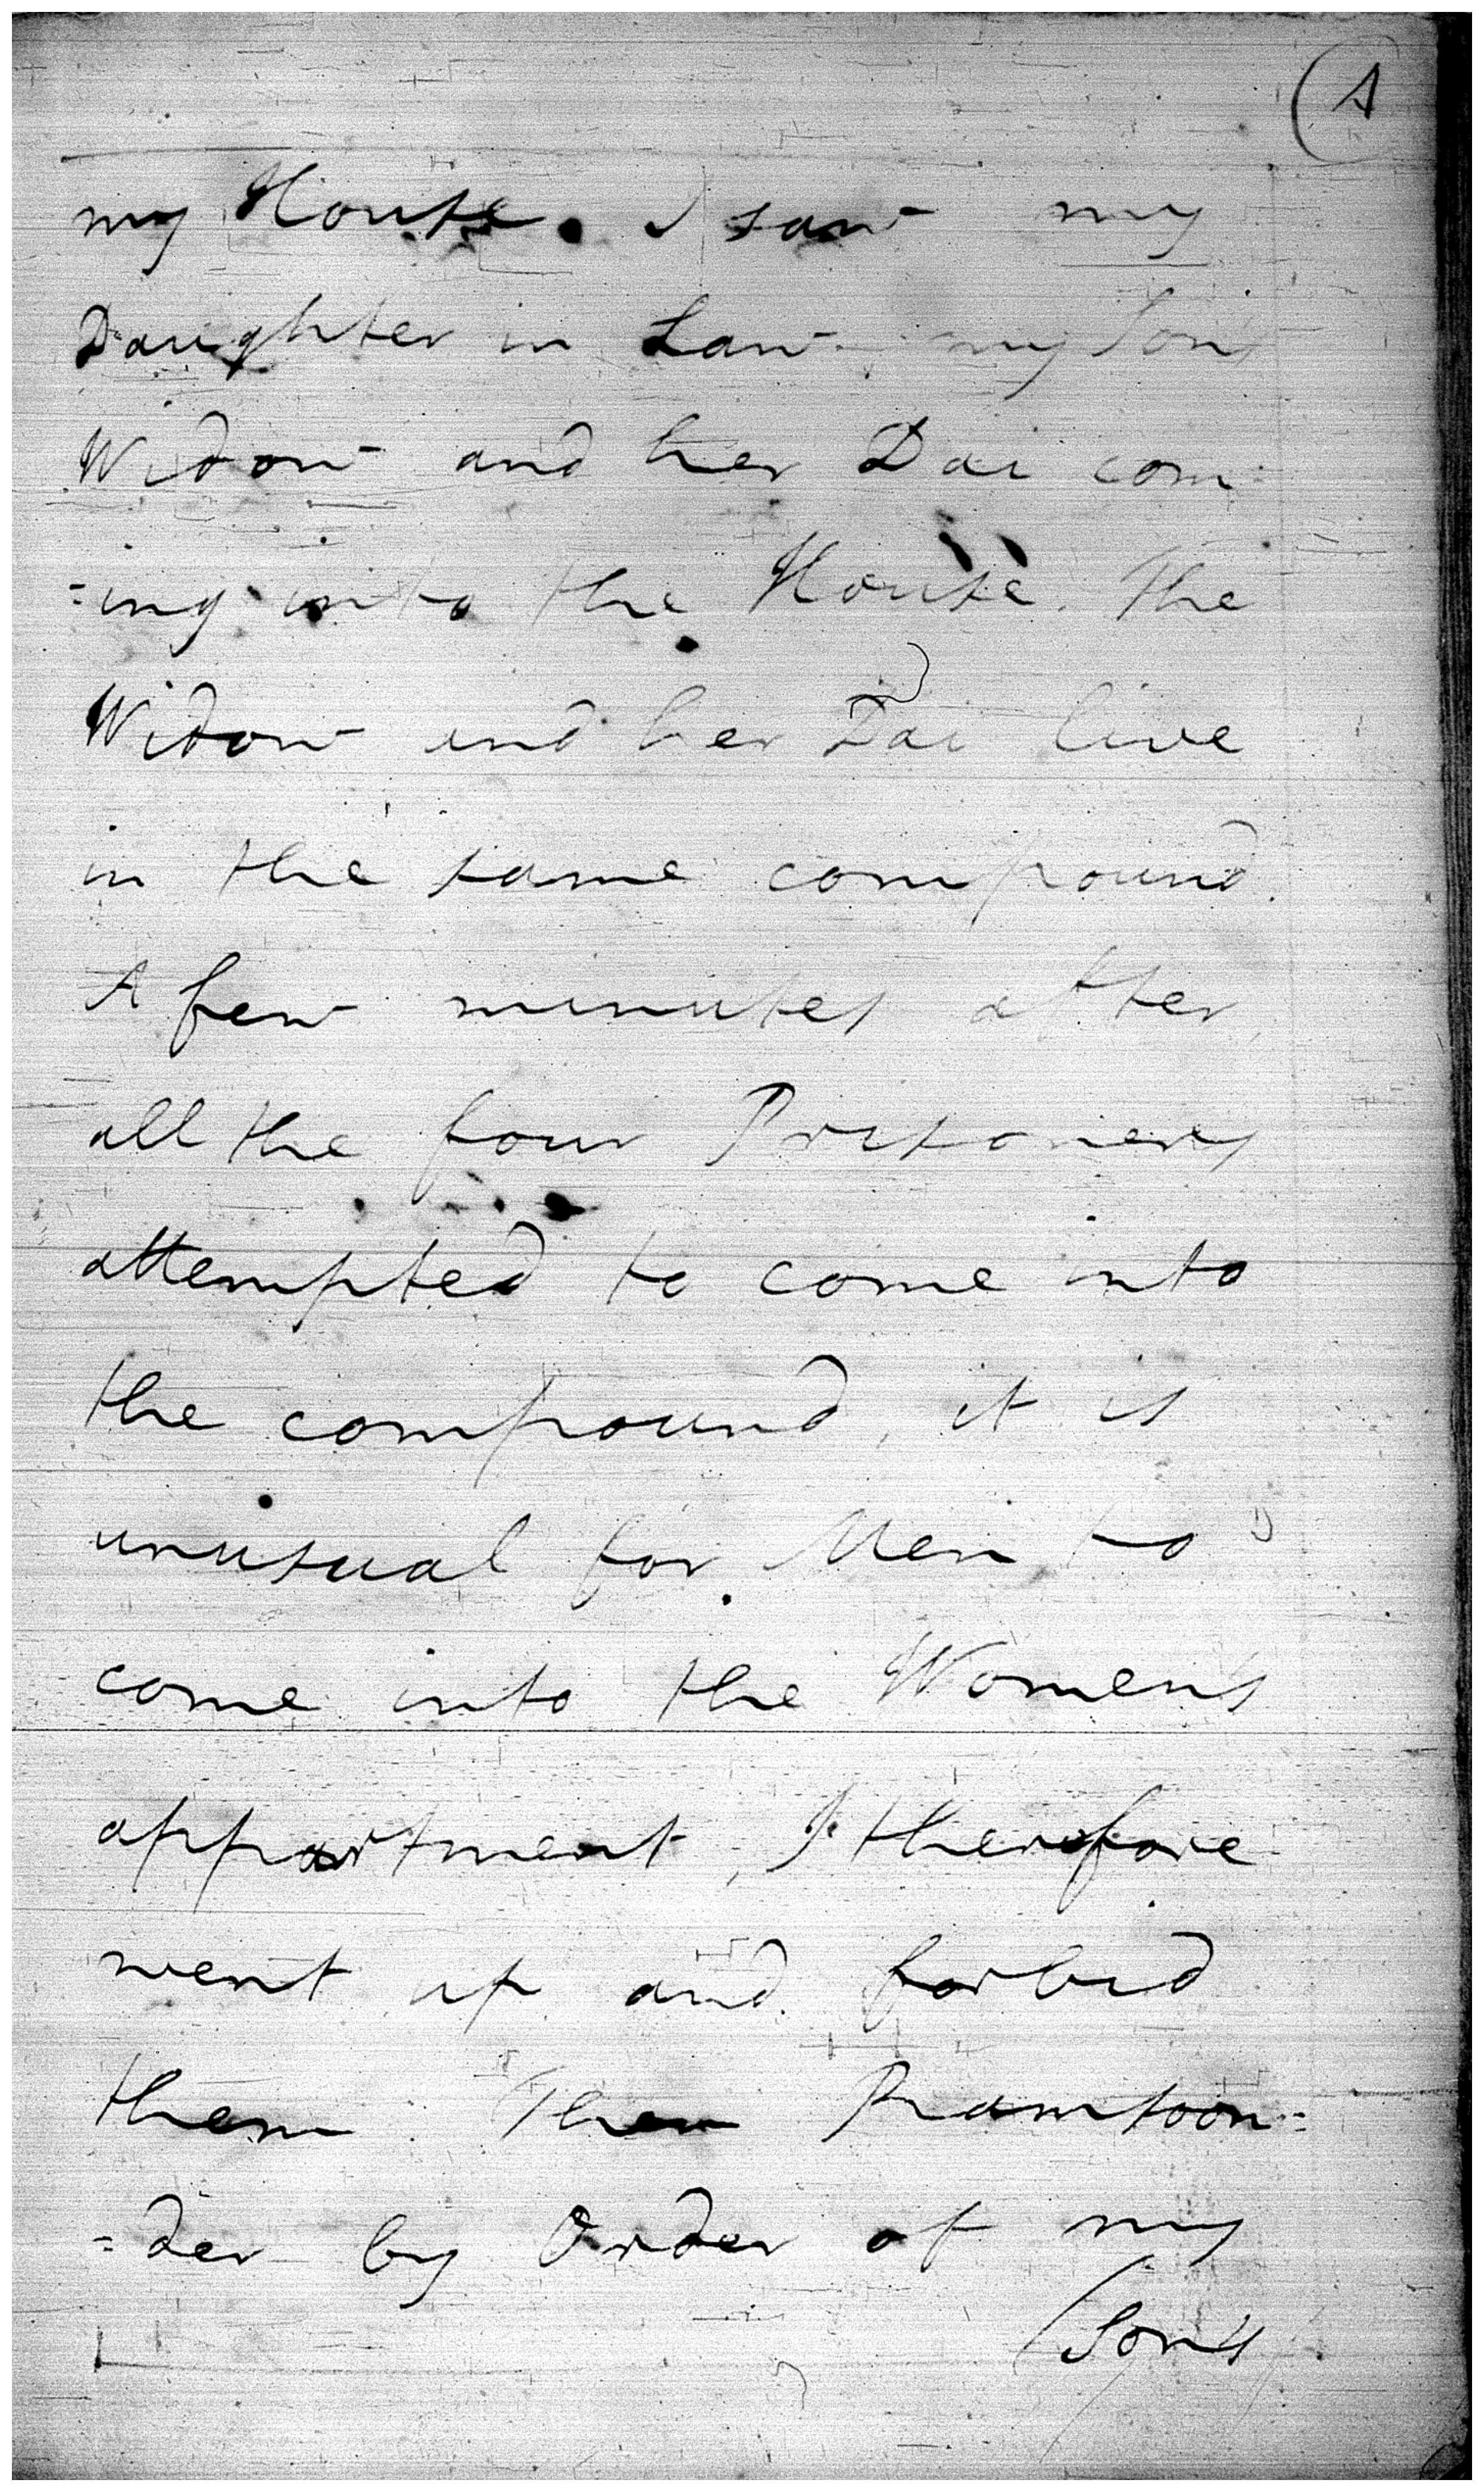 A
my House. I saw my
Daughter in Law my Son's
Widow and her Dai com
-ing into the House. The
Widow and her Dai live
in the same compound.
A few minutes after
all the four Prisoners
attempted to come into
the compound, it is
unusual for Men to
come into the Women's
appartment, I therefore
went up and forbid
them. Then Ramsoon=
=der by Order of my
Son's